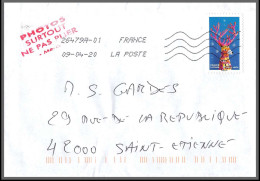 PHOTOS
SURTOUT
NE PAS PLIER
26479A-01 FRANCE
09-04-20 LA POSTE
M. S. GARDES
29 RUE DE LA REPUBLIQUE
42000 SAINT-ETIENNE